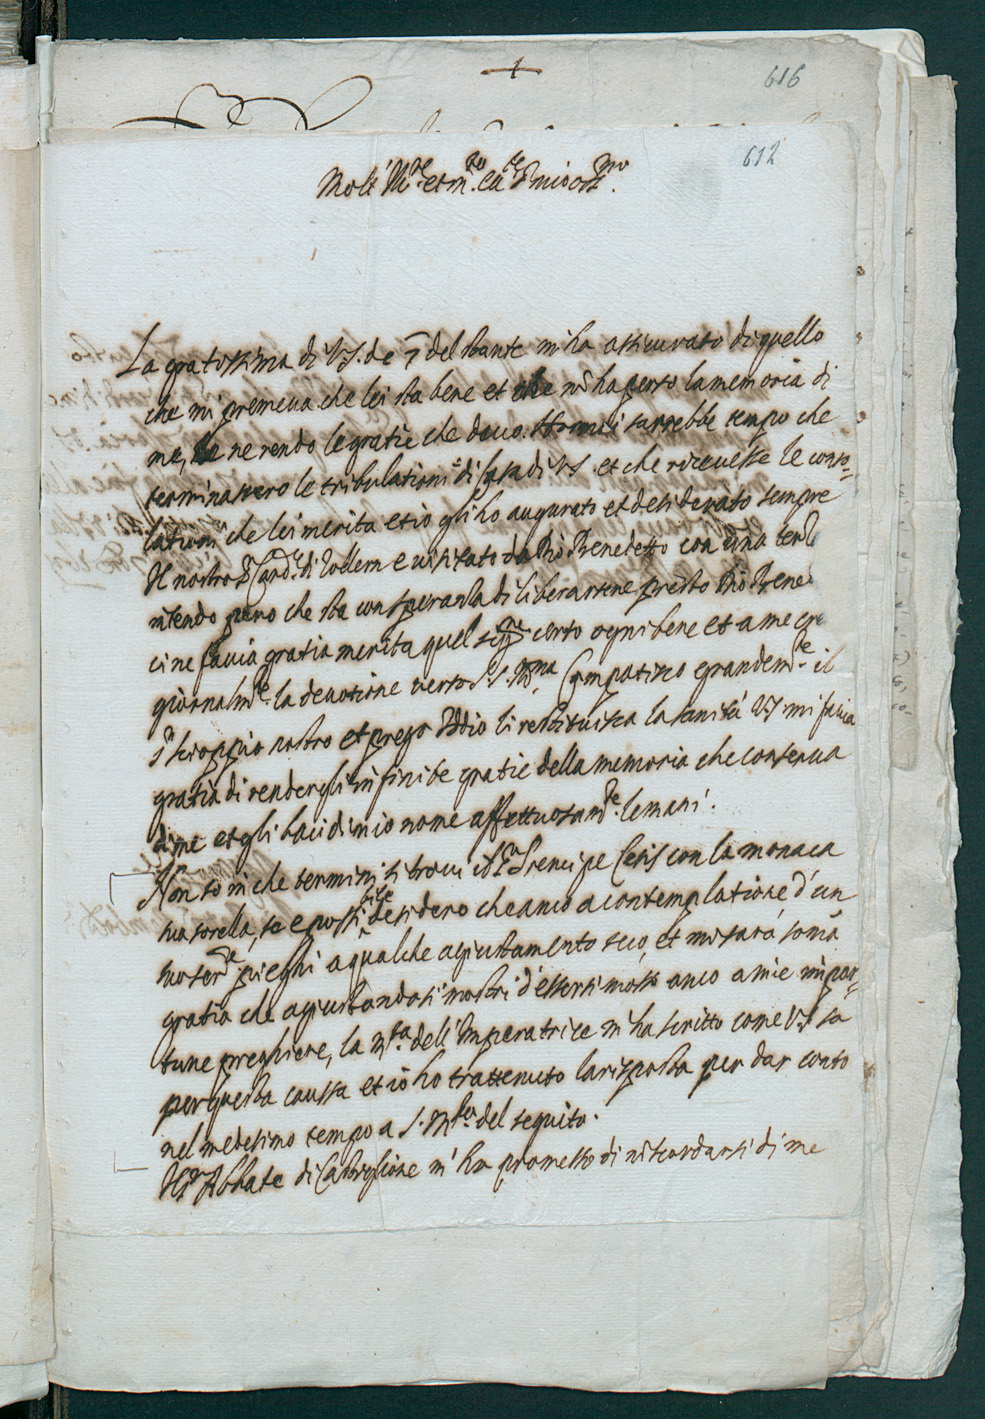 616
612
Molt' Ill.re et m.to Ecc.te S.r mio oss.mo
La gratissima di V.S. de 7 del stante mi ha assicurato di quello
che mi premeva che lei sta bene et che nõ ha perso la memoria di
me, le ne rendo le gratie che devo. Hormai sarrebbe tempo che
terminassero le tribulationi di Casa di V.S. et che ricevesse le conso=
lationi che lei merita et io gli ho augurato et desiderato sempre
Il nostro S.r Card.le di Zollern e visitato da Dio Benedetto con una
intendo pero che sta con speranza di liberarsene presto Dio Bene
ci ne facia gratia merita quel sig.re certo ogni bene et a me cre
giornalm.te la devotione verso S.S. Ill.ma Compatisco grandem.te il
S.r Scioppio nostro et prego Iddio li restituisca la sanità V.S. mi facia
gratia di rendergli infinite gratie della memoria che conserva
di me et gli baci di mio nome affettuosam.te le mani.
Non so in che termini si trovi il S.r Prencipe Cesis con la monaca
sua sorella, se e possibile desidero che anco a contemplatione d'un
suo ser.re pieghi a qualche agiustamento seco, et mi sarà somã
gratia che agiustandosi mostri d'essersi mosso anco a mie impor=
tune preghiere, la M.ta dell'Imperatrice m'ha scritto come V.S. sa
per questa caussa et io ho trattenuto la risposta per dar conto
nel medesimo tempo a S. M.ta del seguito.
Il S.r Abbate di Castiglione m'ha promesso di ricordarsi di me